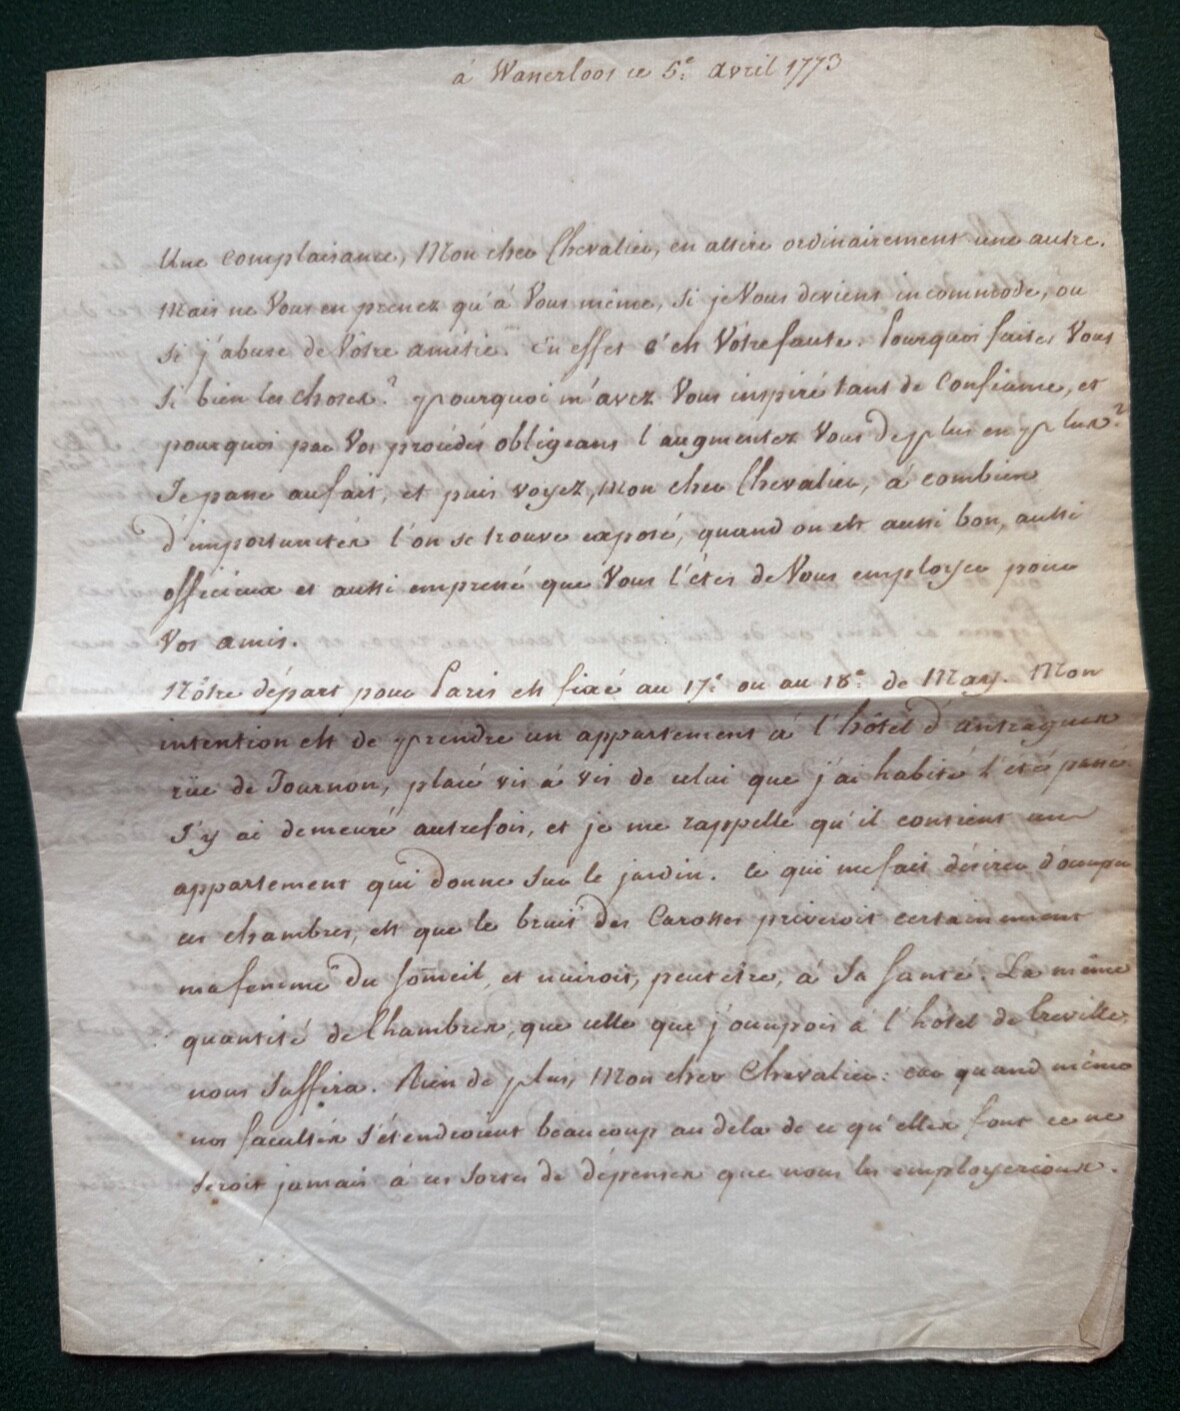 à Wanerloos ce 5.e avril 1773
Une complaisance, Mon cher Chevalier, en attire ordinairement une autre.
Mais ne Vous en prenez qu'à Vous même, si je Vous deviens incommode, ou
si j'abuse de Vôtre amitié. En effet c'est Vôtre faute. Pourquoi faites Vous
si bien les choses? pourquoi m'avez Vous inspiré tant de Confiance, et
pourquoi par Vos procédés obligeans l'augmentez Vous de plus en plus?
Je passe au fait, et puis voyez, Mon cher Chevalier, à combien
d'importunités l'on se trouve exposé, quand on est aussi bon, aussi
officieux et aussi empressé que Vous l'êtes de Vous employer pour
Vos amis.
Nôtre départ pour Paris est fixé au 17.e ou au 18.e de May. Mon
intention est de prendre un appartement à l'hôtel d'antragues
rüe de Tournon, placé vis à vis de celui que j'ai habité l'été passé
J'y ai demeuré autrefois, et je me rappelle qu'il contient un
appartement qui donne sur le jardin. Ce qui me fait désirer d'occuper
ces chambres, est que le bruit des Carosses priveroit certainement
ma femme du someil, et nuiroit, peut etre, à sa santé. La même
quantité de Chambres, que celle que j'occupois à l'hôtel de Treville,
nous suffira. Rien de plus, Mon cher Chevalier: car quand même
nos facultés s'étendroient beaucoup au dela de ce qu'elles sont ce ne
seroit jamais à ces sortes de dépenses que nous les employerions.